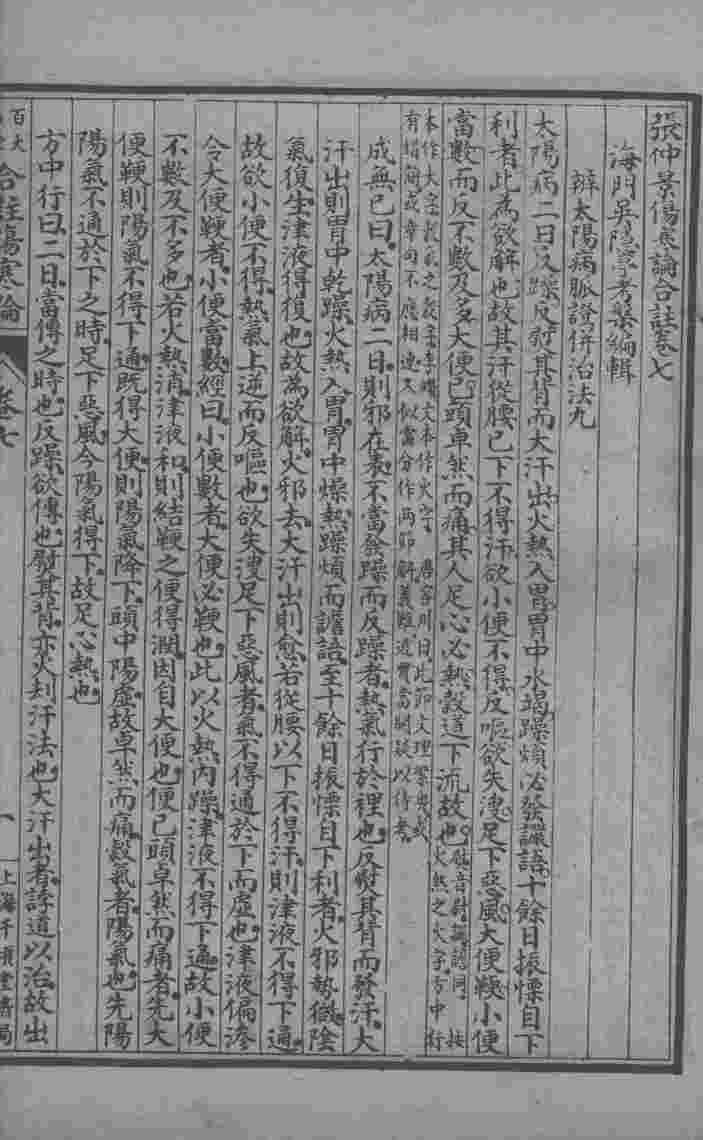 張仲景傷寒論合註卷七
海門吳考槃編輯
辨太陽病脈證併治法九
太陽病二日反躁反熨其背而大汗出火熱入胃胃中水竭躁煩必發讝語十餘日振慄自下
利者此為欲解也故其汗從腰已下不得汗欲小便不得反嘔欲失溲足下惡風大便鞕小便
當數而反不數及多大便已頭卓然而痛其人足心必熱穀道下流故也熨音尉讝譫同 按火熱之火字方中行
本作大字
成無已曰太陽病二日則邪在表不當發躁而反躁者熱氣行於裡也反熨其背而發汗大
汗出則胃中乾躁火熱入胃胃中燥熱躁煩而譫語至十餘日振慄自下利者火邪勢微陰
氣復生津液得復也故為欲解火邪去大汗出則愈若從腰以下不得汗則津液不得下通
故欲小便不得熱氣上逆而反嘔也欲失溲足下惡風者氣不得通於下而虛也津液偏滲
令大便鞕者小便當數經曰小便數者大便必鞕也此以火熱內躁津液不得下通故小便
不數及不多也若火熱消津液和則結鞕之便得潤因自大便也便已頭卓然而痛者先大
便鞕則陽氣不得下通既得大便則陽氣降下頭中陽虛故卓然而痛穀氣者陽氣也先陽
陽氣不通於下之時足下惡風今陽氣得下故足心熱也
方中行曰二日當傳之時也反躁欲傳也熨其背亦火刦汗法也大汗出者誖道以治故出
百大
合註傷寒論
卷七
上海千頃堂書局